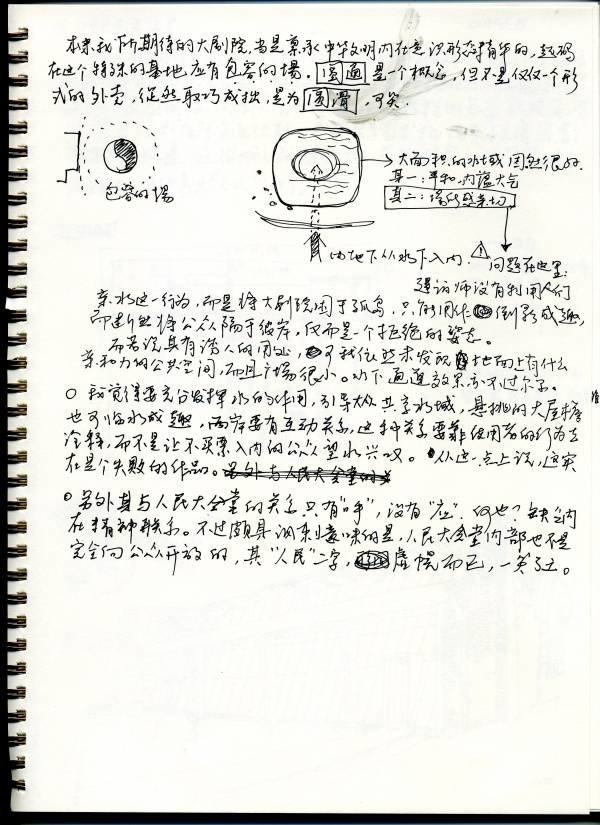 本来我所期待的大剧院,当是秉承中华文明内在意识形态精华的,起码
在这个特殊的基地应有包容的場。圆通是一个概念,但不是仅仅一个形
式的外壳,徒然取巧成拙,是为圆滑,可笑.
包容的場
大面积的水域固然很好.
其一:平和,内蕴大气
其二:場所感亲切
由地下从水下入内.
问题在这里:
建筑师没有利用人们
亲水这一行为,而是将大剧院困于孤岛,只利用作倒影成趣,
而断然将公众隔于彼岸,仅而是一个拒绝的姿态。
而若说具有诱人的用处,我依然未发现地面上有什么
亲和力的公共空间,而且广場很小。水下通道效果亦不过尔尔。
○ 我觉得要充分发挥水的作用,引导大众共享水域,悬挑的大屋檐
也可临水成趣,两岸要有互动关系,这种关系要靠使用者的行为去
诠释,而不是让不买票入内的公众望水兴叹。从这一点上说,这实
在是个失败的作品。另外与人民大会堂的关
○ 另外其与人民大会堂的关系只有"呼",没有"应",何也?缺乏内
在精神联系。不过颇具讽刺意味的是,人民大会堂内部也不是
完全向公众开放的,其"人民"二字,虚幌而已,一笑了之。